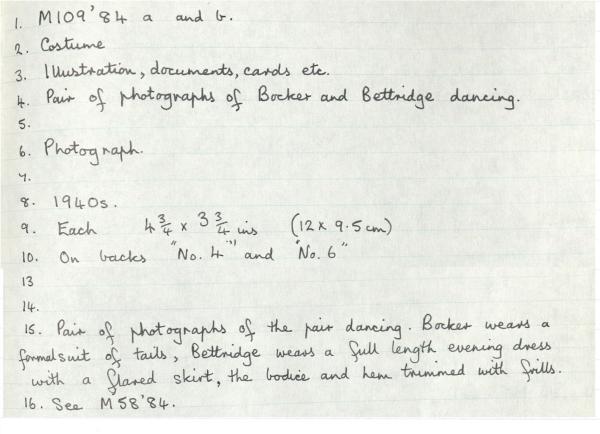 1. M109'84 a and b.
2. Costume
3. Illustration, documents, cards etc.
4. Pair of photographs of Bocker and Bettridge dancing.
5.
6. Photograph.
7.
8. 1940s.
9. Each 4 3/4 x 3 3/4 ins (12 x 9.5 cm)
10. On backs "No. 4" and "No. 6"
13
14.
15. Pair of photographs of the pair dancing. Bocker wears a
formal suit of tails, Bettridge wears a full length evening dress
with a flared skirt, the bodice and hem trimmed with frills.
16. See M58'84.